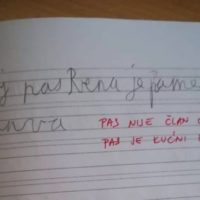 j pas Rena je pame
nva
PAS NIJE ČLAN
PAS JE KUĆNI